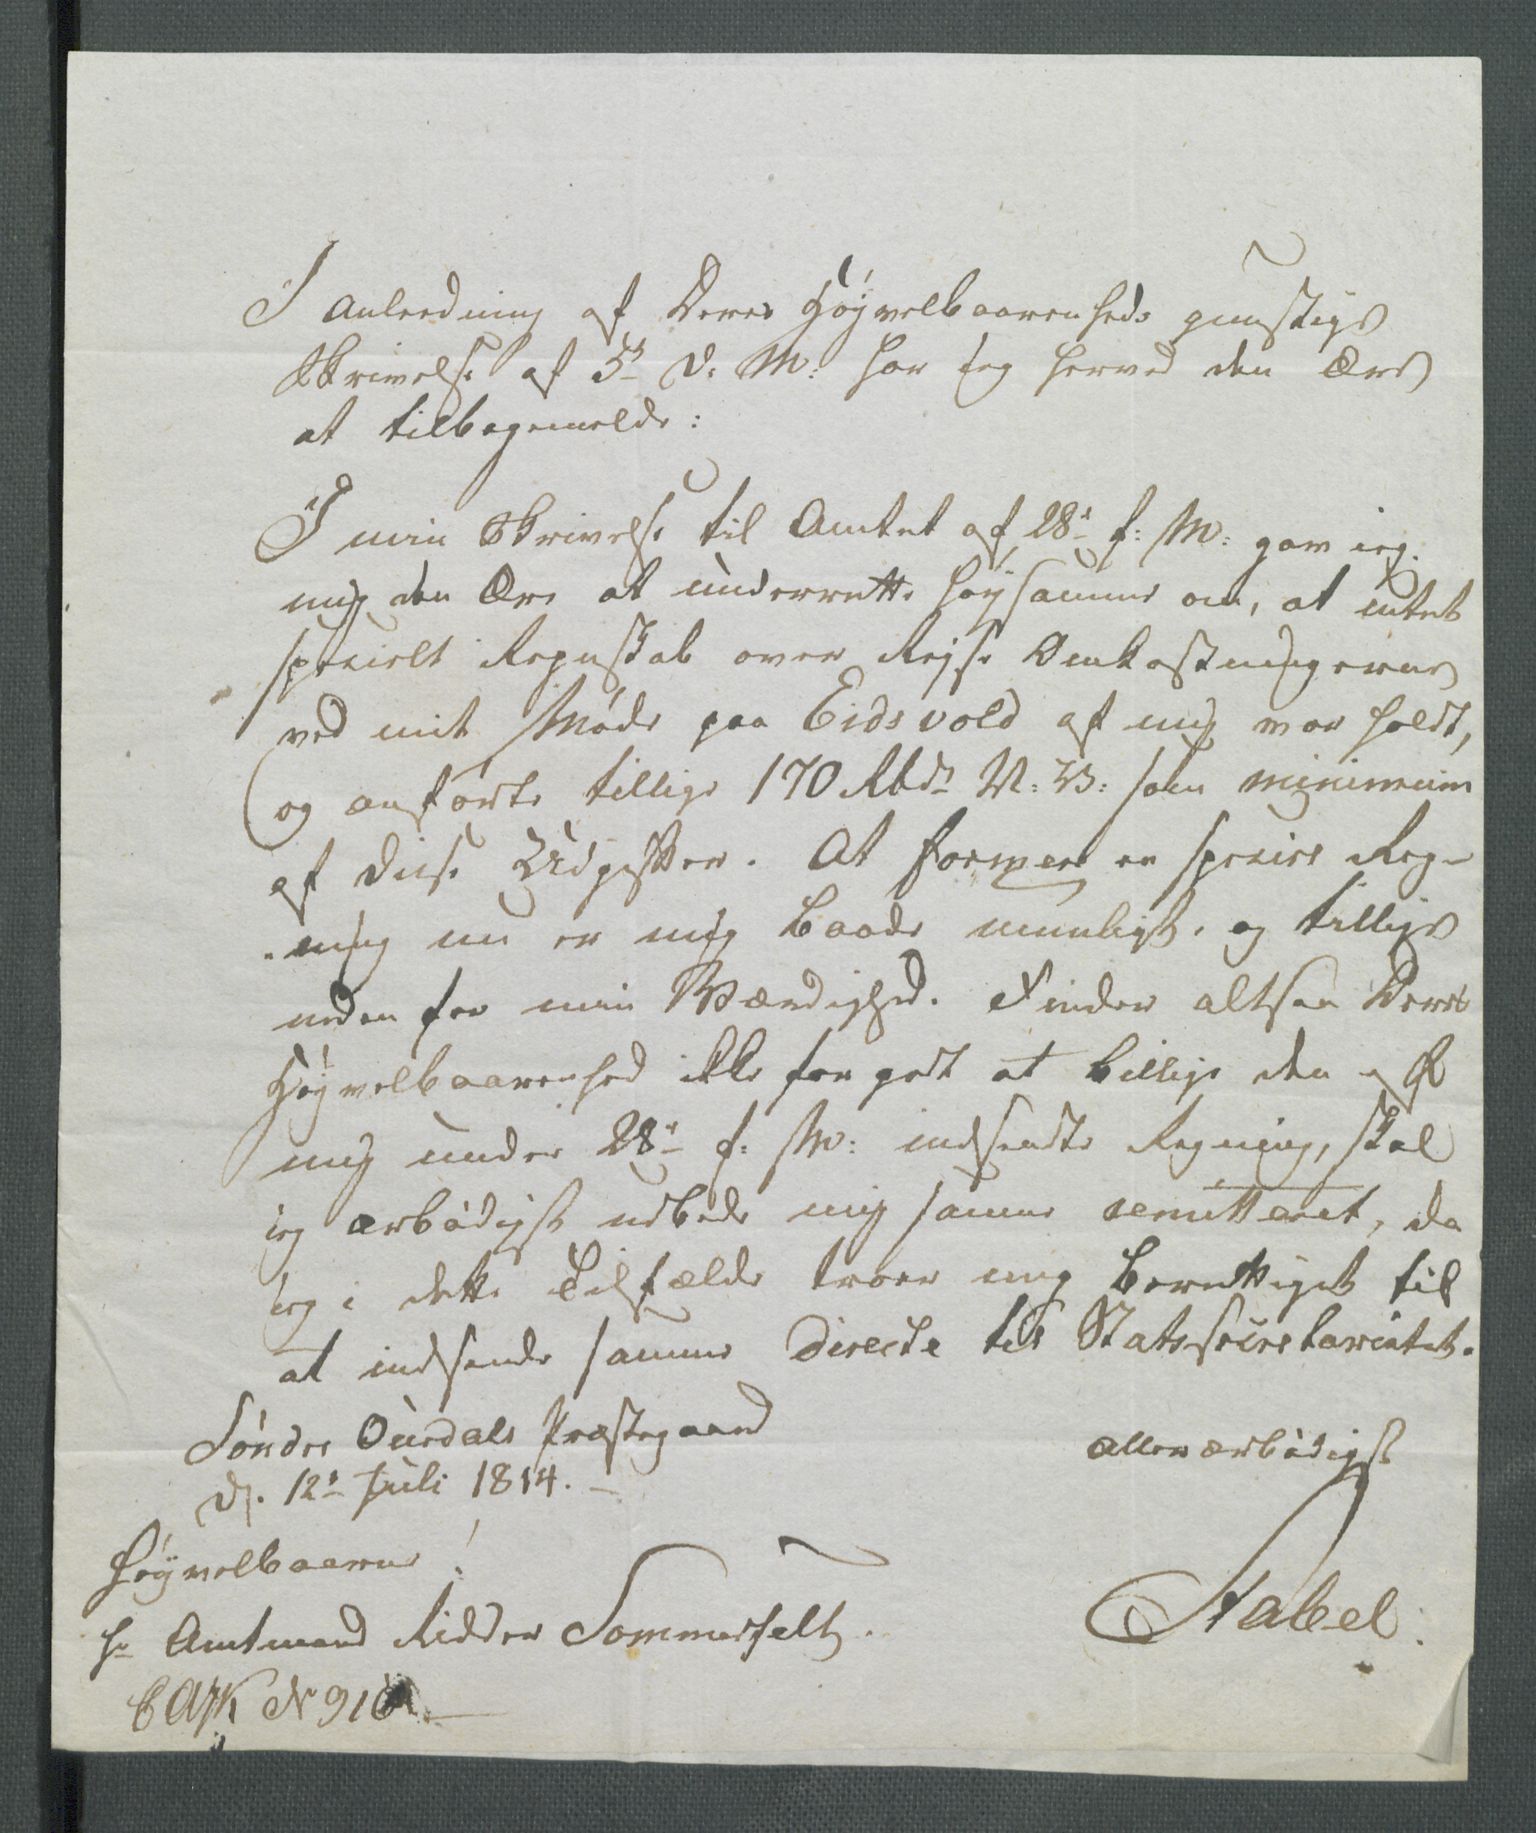 I Anleedning af Deres Høyvelbaarenheds gunstige
Skrivelse af 5t d: M: har ieg herved den Ære
at tilbagemelde:
I min Skrivelse til Amtet af 28de f: M: gav ieg
mig den Ære at underrette høysamme om, at intet
specielt Regnskab over Rejse Omkostningerne
ved mit Møde paa Eidsvold af mig var holdt,
og anførte tillige 170 Rbdr N: V: som minimum
af disse Udgifter. At formere en speciel Reg-
ning nu er mig baade umuligt og tillige
neden for min Værdighed. Finder altsaa Deres
Høyvelbaarenhed ikke for godt at billige den af
mig under 28de f: M: indsendte Regning, skal
ieg ærbødigst udbede mig samme remitteret, da
ieg i dette Tilfælde troer mig berettiget til
at indsende samme directe til Statssecretariatet.
Søndre Ourdals Præstegaard
d. 12te Juli 1814.
allerærbødigst
Stabel.
Høyvelbaarne
Hr Amtmand Ridder Sommerfelt.